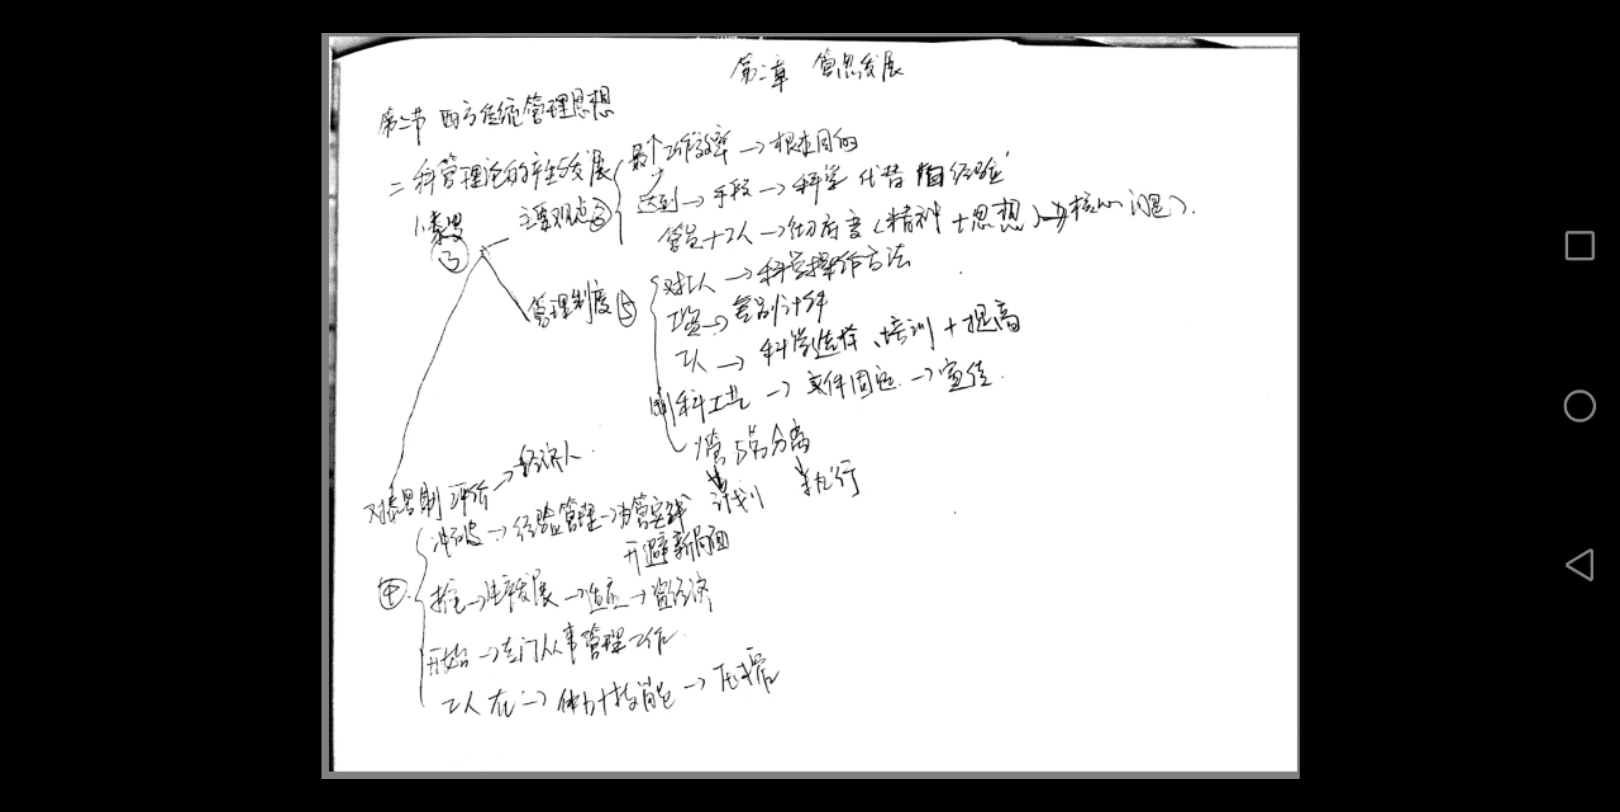 第二章 管思发展
第二节 西方传统管理思想
二 科管理论的产生与发展
最个工作效率→根本目的
达到→手段→科学代替 经验
1.泰罗 ③
主要观点③
管员+工人→彻底变(精神+思想)→核心问题).
管理制度⑤
对工人→科学操作方法
工资→差别计件
工人→科学选择、培训+提高
制科工艺→文件固定→宣传.
管与劳分离
计划 执行
对泰罗制 评价→经济人.
④
冲破→经验管理→为管实践
开避新局面
推→生产发展→适应→资经济
开始→专门从事管理工作.
工人在→体力+技能→压榨